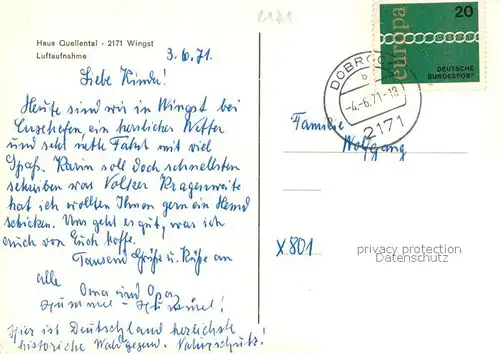 2171
Haus Quellental - 2171 Wingst
Luftaufnahme
3.6.71.
Liebe Kinder!
Heute sind wir in Wingst bei
ein herrliches Wetter
und seht nette Fahrt mit viel
Spaß. Karin soll doch schnellstens
schreiben was Volker Kragenweite
hat ich wollten Ihnen gern ein Hemd
schicken. Uns geht es gut, was ich
auch von Euch hoffe.
Tausend Grüße u. Küße an
alle
Oma und Opa
Hummel - Hummel!
Hier ist Deutschland herrlichste
historiche Waldgegend. Naturschutz!
europa
20
DEUTSCHE
BUNDESPOST
DOBROCK
-4.-6.71-18
2171
Familie
Wolfgang
X801
privacy protection
Datenschutz